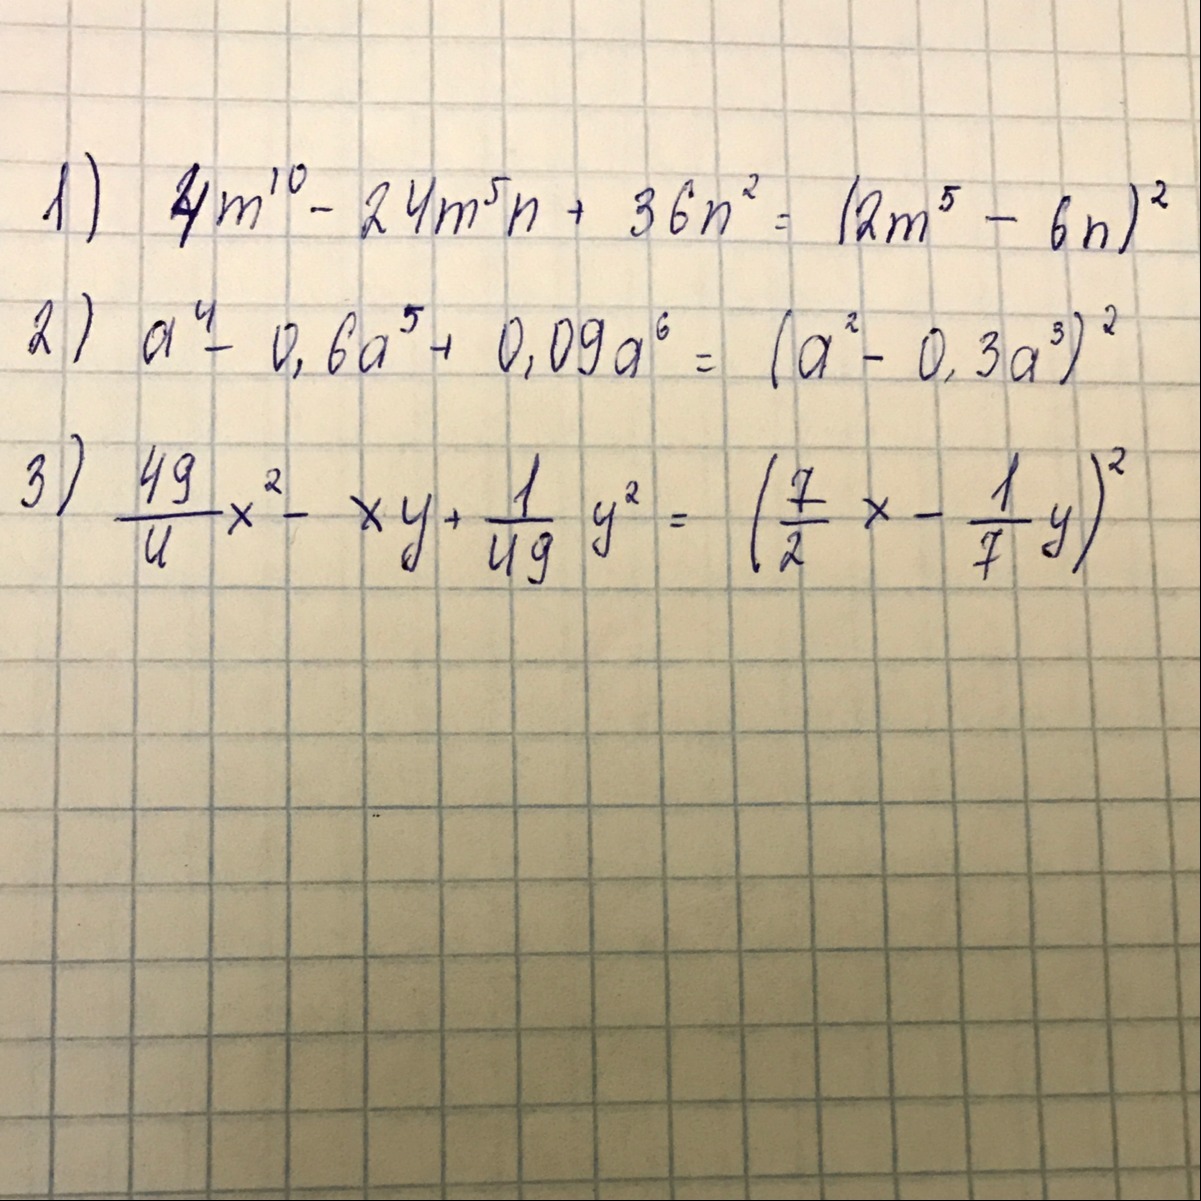 1) 4m¹⁰ - 24m⁵n + 36n² = (2m⁵ - 6n)²
2) a⁴ - 0,6a⁵ + 0,09a⁶ = (a² - 0,3a³)²
3) 49/4 x² - xy + 1/49 y² = (7/2 x - 1/7 y)²